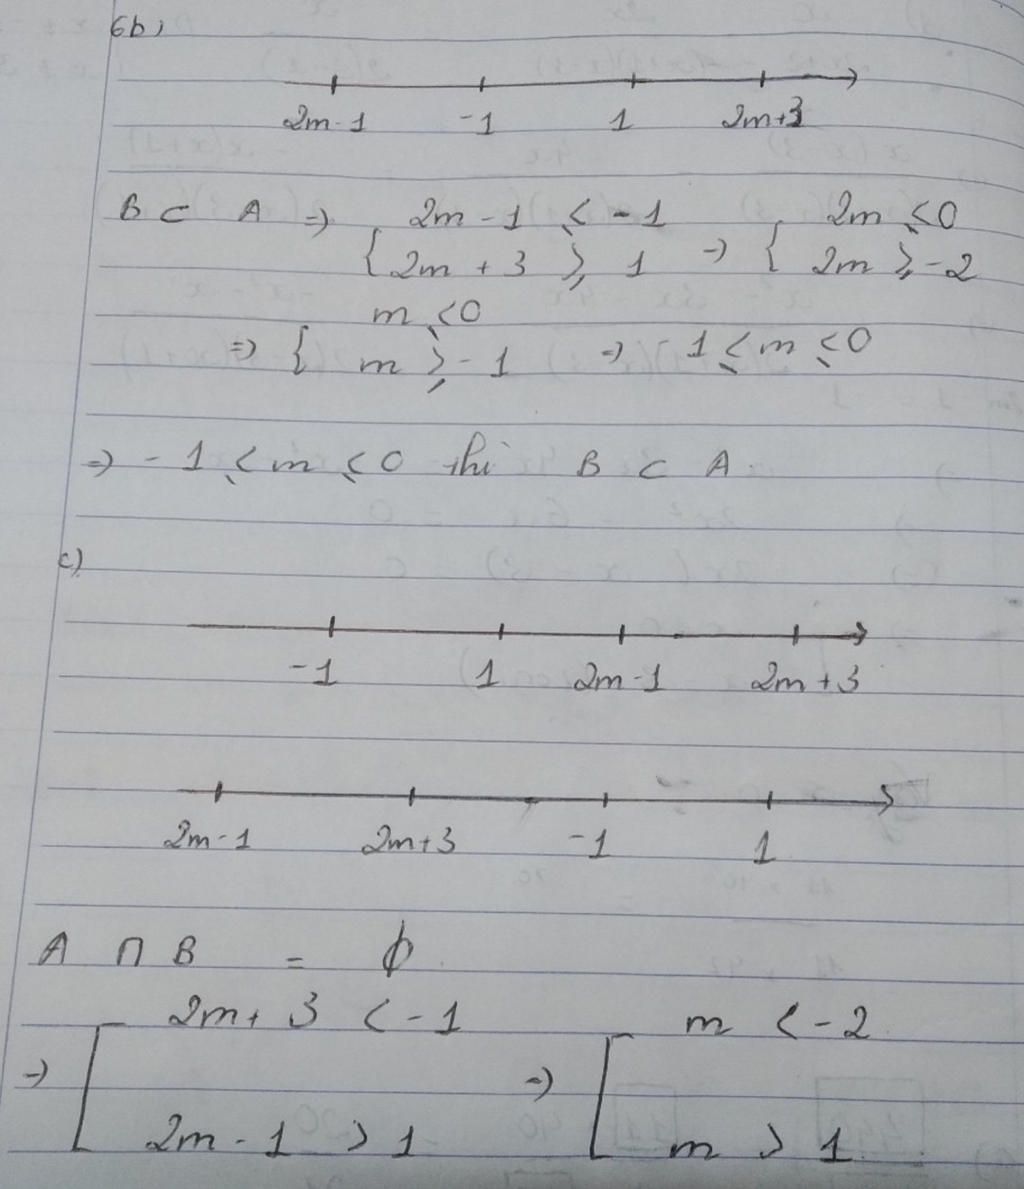 6b,
2m-1 -1 1 2m+3
B ⊂ A ⇒ { 2m - 1 ≤ -1 ⇒ { 2m ≤ 0
2m + 3 ≥ 1 2m ≥ -2
⇒ { m ≤ 0
m ≥ -1 ⇒ -1 ≤ m ≤ 0
⇒ -1 ≤ m ≤ 0 thì B ⊂ A
c)
-1 1 2m-1 2m+3
2m-1 2m+3 -1 1
A ∩ B = ϕ
⇒ [ 2m + 3 < -1 ⇒ [ m < -2
2m - 1 > 1 m > 1